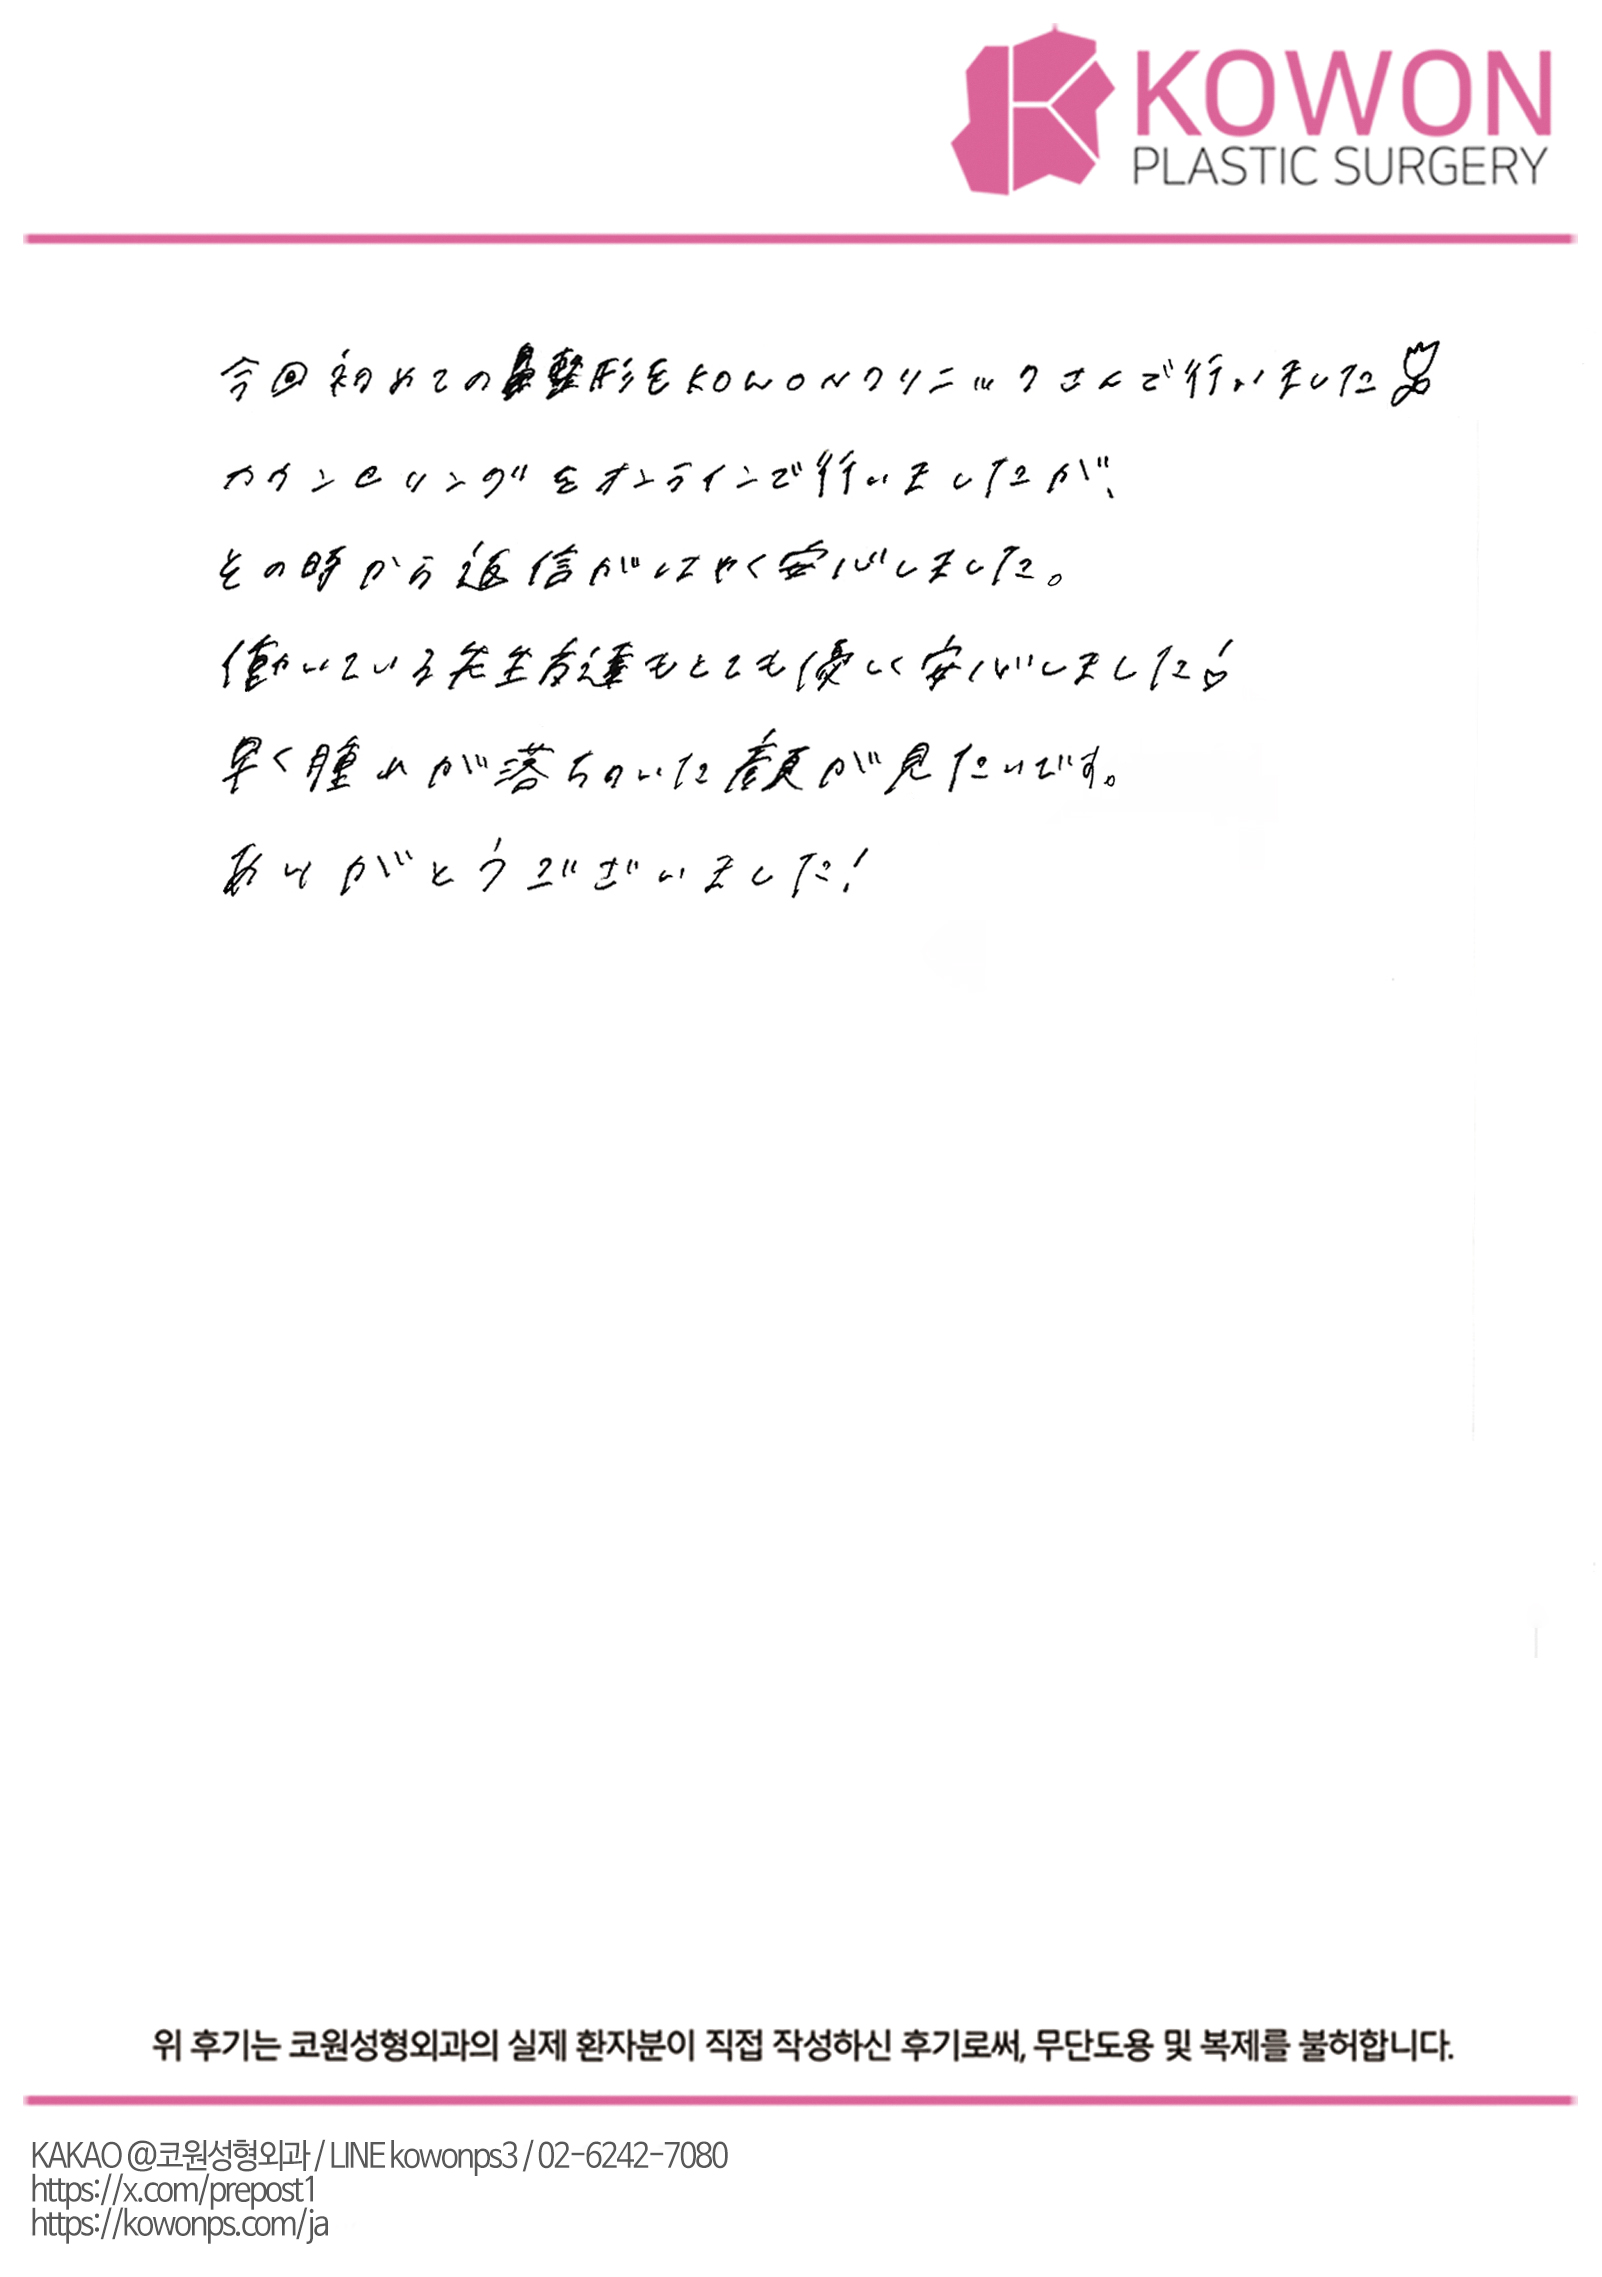 KOWON
PLASTIC SURGERY
今回初めての鼻整形をKOWONクリニックさんで行いました
カウンセリングをオンラインで行いましたが、
その時から返信がはやく安心しました。
働いている先生方達もとても優しく安心しました
早く腫れが落ちついた顔が見たいです。
ありがとうございました!
위 후기는 코원성형외과의 실제 환자분이 직접 작성하신 후기로써, 무단도용 및 복제를 불허합니다.
KAKAO @코원성형외과 / LINE kowonps3 / 02-6242-7080
https://x.com/prepost1
https://kowonps.com/ja